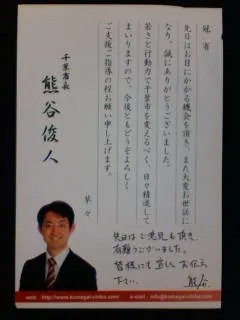 冠省
先日はお目にかかる機会を頂き、また大変お世話に
なり、誠にありがとうございました。
若さと行動力で千葉市を変えるべく、日々精進して
まいりますので、今後ともどうぞよろしく
ご支援ご指導の程お願い申し上げます。
草々
千葉市長
熊谷俊人
先日はご意見も頂き
有難うございました。
皆様にも宜しくお伝え
下さい。
熊谷
web http://www.kumagai-chiba.com/
e-mail info@kumagai-chiba.com